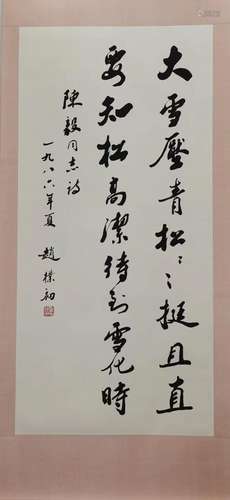 大雪壓青松〻挺且直
要知松高潔待到雪化時
陳毅同志詩
一九八六年夏 趙樸初